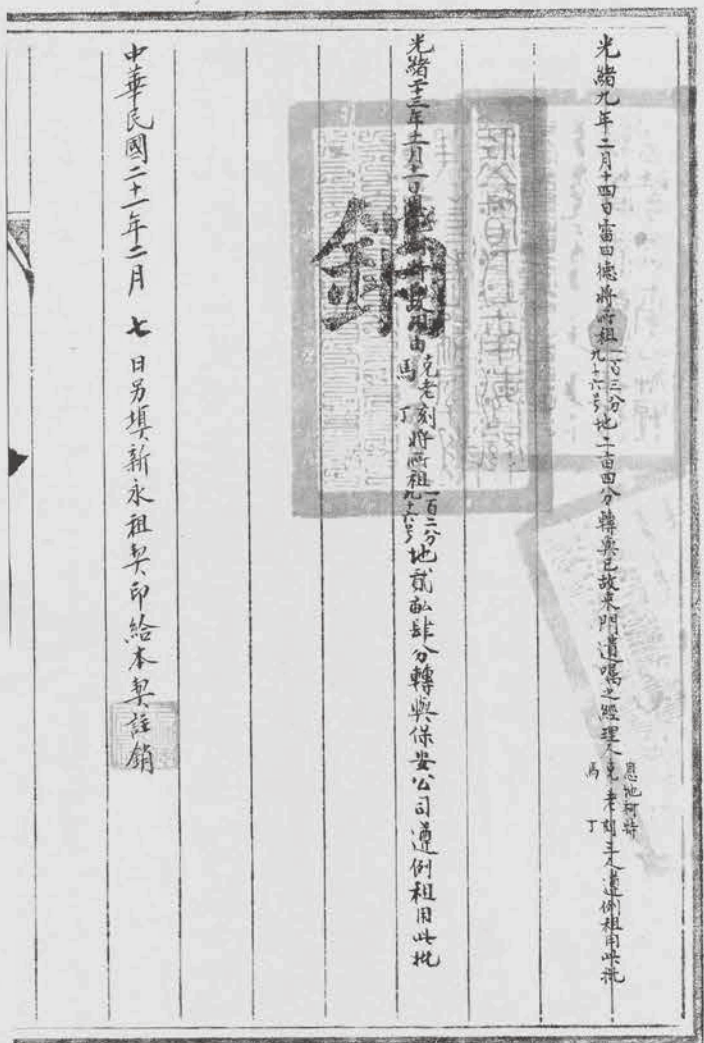 光緒九年二月十四日雷田德將所租一百三分九十六号地二畝四分轉與已故來門遺囑之經理人恩地柯特克老刻馬丁三人遵例租用此批
光緒二十三年十二月十一日由克老刻馬丁將所租一百二分九十六号地貳畝肆分轉與保安公司遵例租用此批
銷
中華民國二十一年二月七日另填新永租契印給本契註銷